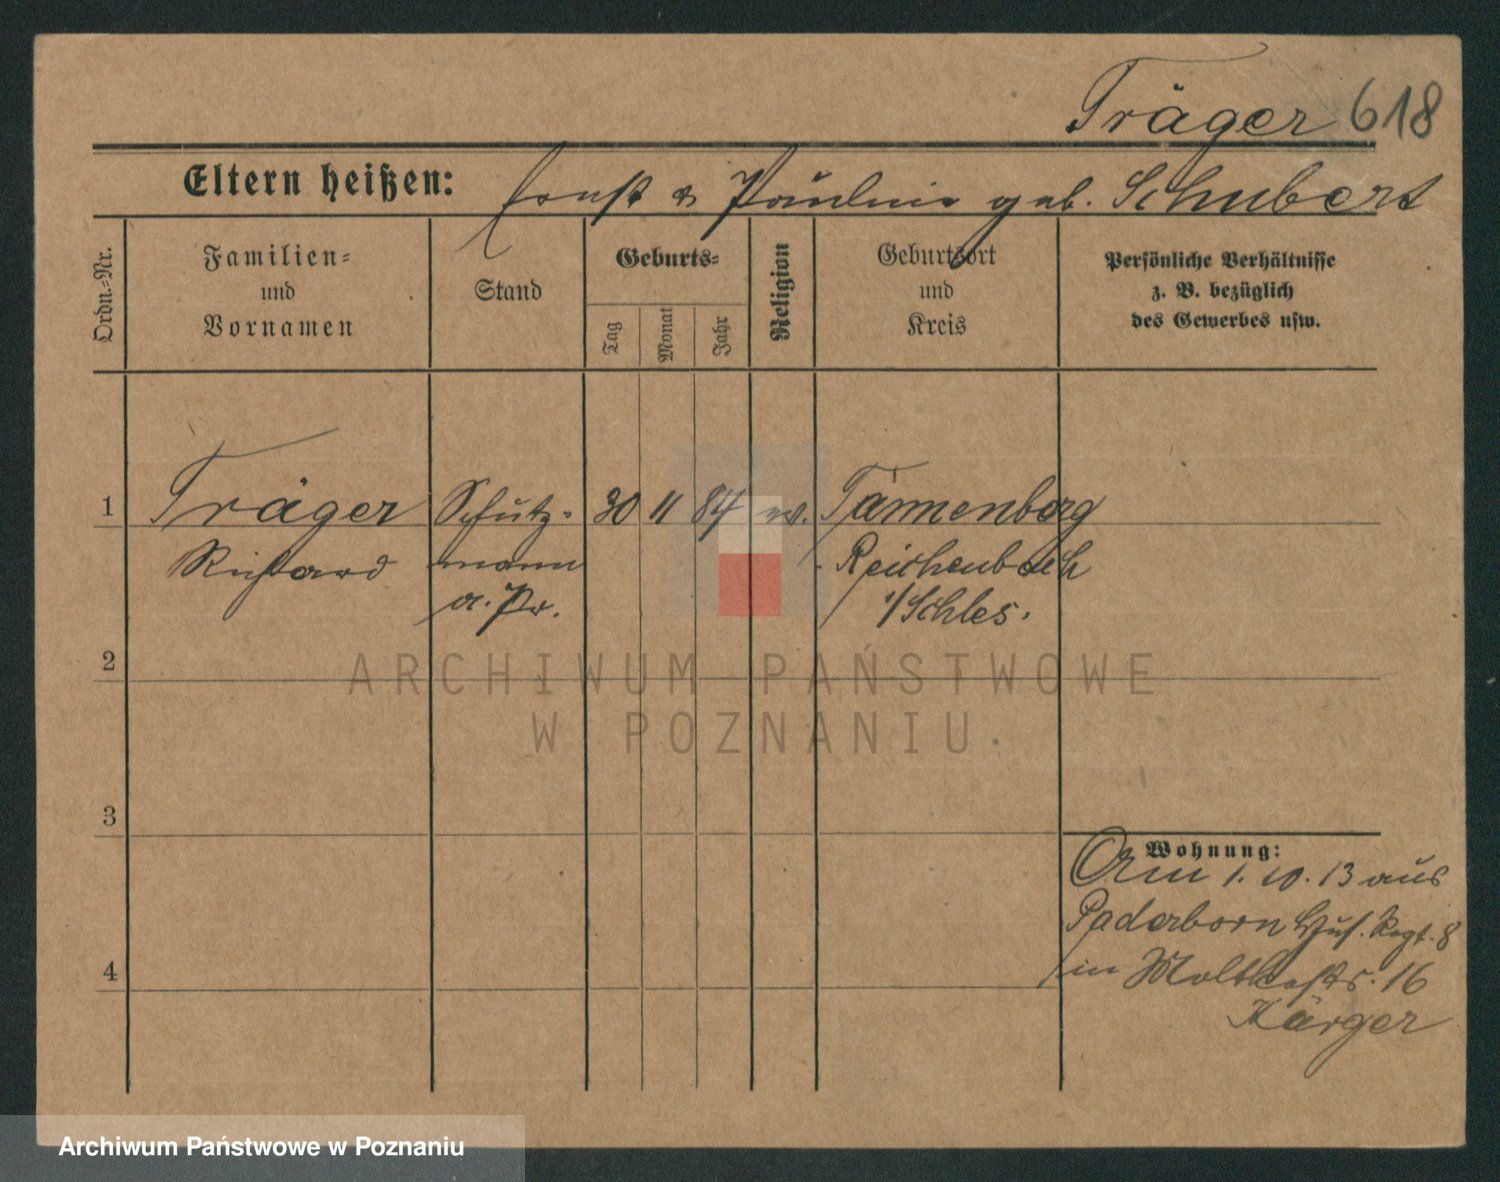 Träger 618
Eltern heißen: Ernst & Pauline geb. Schubert
Ordn.-Nr.
Familien-
und
Vornamen
Stand
Geburts-
Tag
Monat
Jahr
Religion
Geburtsort
und
Kreis
Persönliche Verhältnisse
z. B. bezüglich
des Gewerbes usw.
1 Träger Schutz- 30 11 84 ev. Tannenberg
Richard mann Reichenbach
a. Pr. i/Schles.
2
ARCHIWUM PAŃSTWOWE
W POZNANIU.
3
Wohnung:
Am 1. 10. 13 aus
Paderborn Hus. Regt. 8
4 in Moltkestr. 16
Kärger
Archiwum Państwowe w Poznaniu